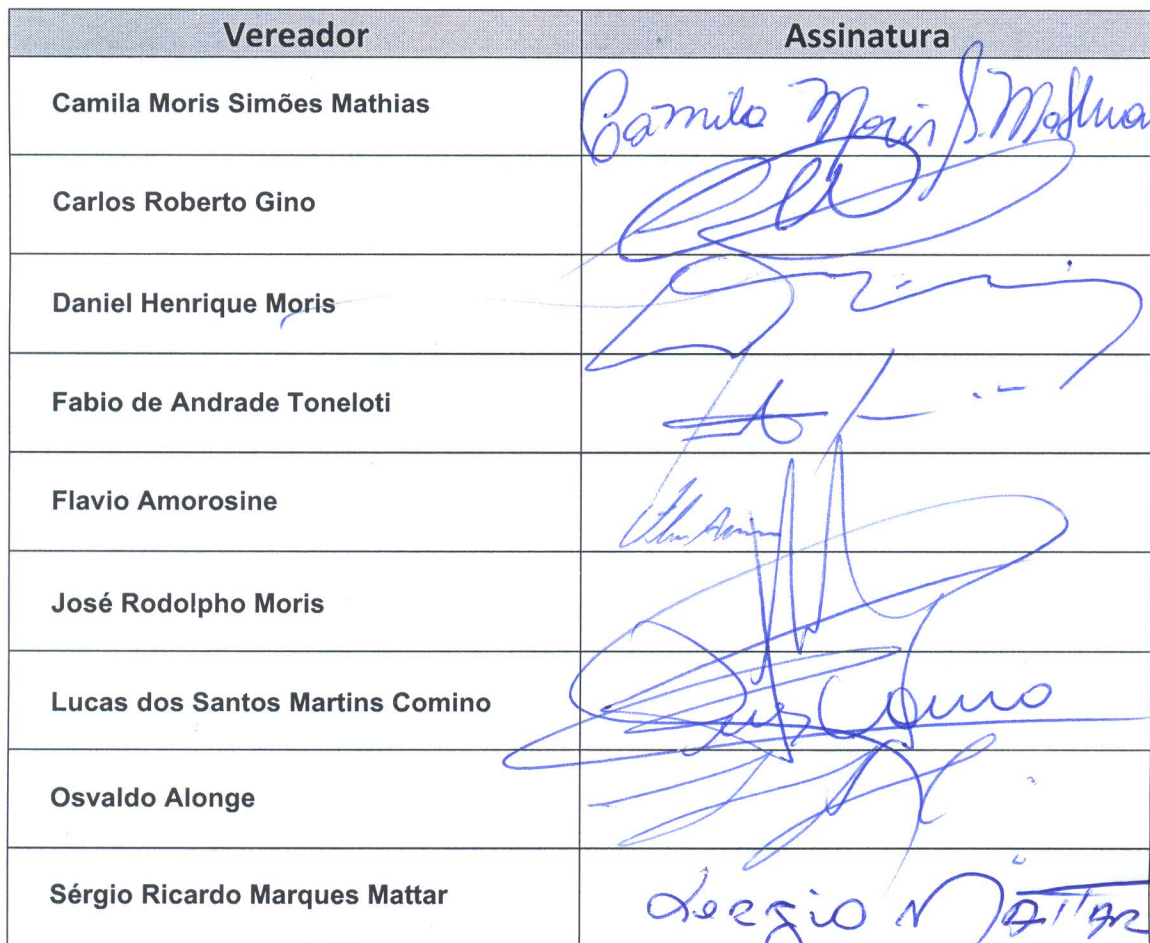 Vereador Assinatura
Camila Moris Simões Mathias Camila Moris S. Mathias
Carlos Roberto Gino
Daniel Henrique Moris
Fabio de Andrade Toneloti
Flavio Amorosine
José Rodolpho Moris
Lucas dos Santos Martins Comino
Osvaldo Alonge
Sérgio Ricardo Marques Mattar Sergio MATTAR